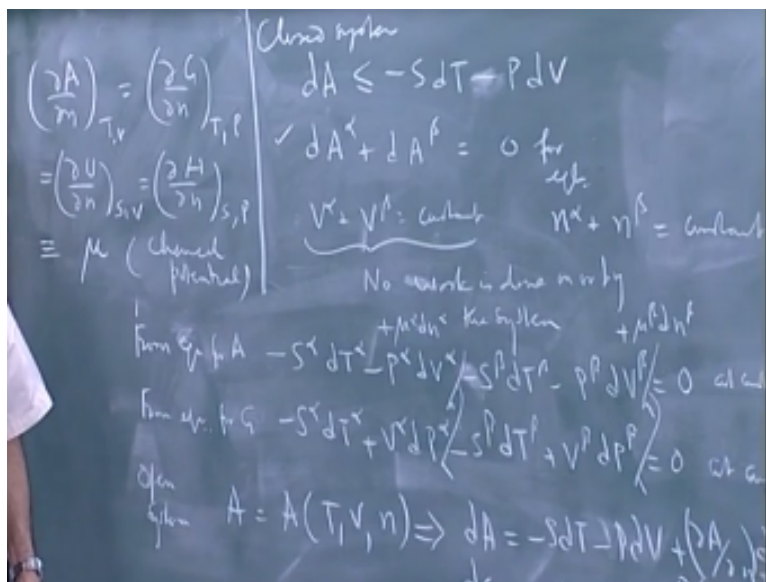 (∂A/∂n)_{T,V} = (∂G/∂n)_{T,P}
= (∂U/∂n)_{S,V} = (∂H/∂n)_{S,P}
≡ μ (Chemical
potential)
Closed system
dA ≤ -SdT - PdV
✓ dA^α + dA^β = 0 for
V^α + V^β = constant n^α + n^β = constant
No work is done on or by
the system
+μ^α dn^α +μ^β dn^β
From eq. for A -S^α dT^α - P^α dV^α - S^β dT^β - P^β dV^β = 0 at
From eq. for G -S^α dT^α + V^α dP^α - S^β dT^β + V^β dP^β = 0 at
Open
System A = A(T, V, n) ⇒ dA = -SdT - PdV + (∂A/∂n)